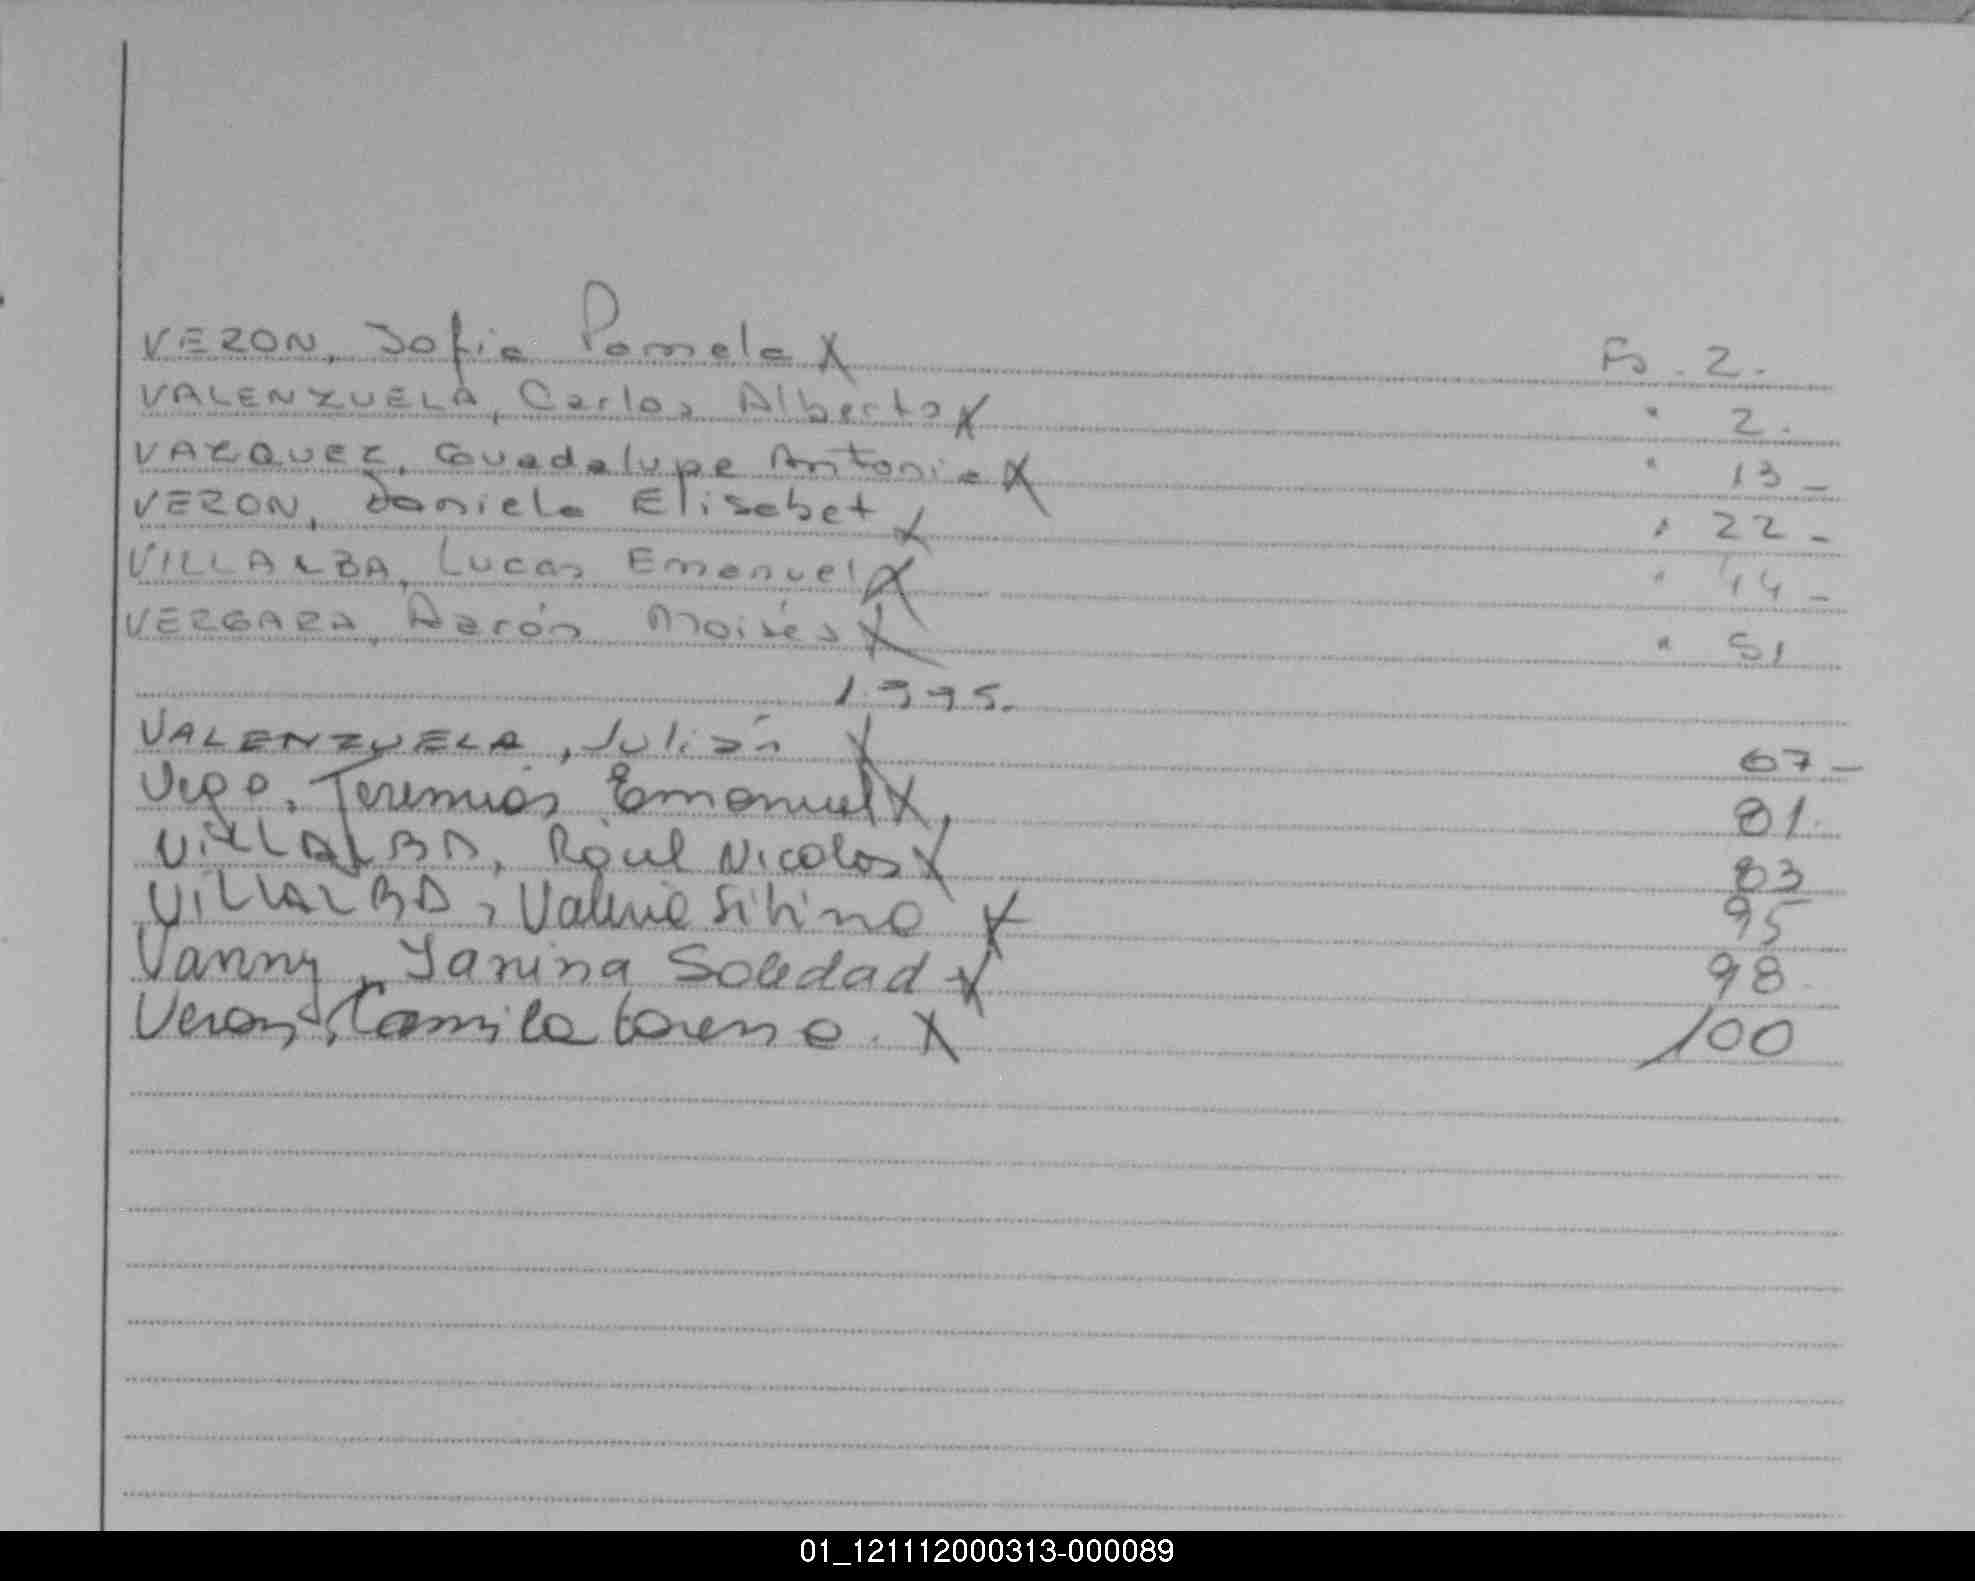 VERON, Sofia Pamela X Fs. 2.
VALENZUELA, Carlos Alberto X " 2.
VAZQUEZ, Guadalupe Antonia X " 13 -
VERON, Daniela Elisabet X " 22 -
VILLALBA, Lucas Emanuel X " 44 -
VERGARA, Aarón Moisés X " 51
1.995.
VALENZUELA, Julián X 67 -
Vega, Jeremias Emanuel X 81.
VILLALBA, Raúl Nicolas X 83
VILLALBA, Valeria Silvina X 95
Vanny, Yanina Soledad X 98.
Veron, Camila Lorena. X 100
01_121112000313-000089